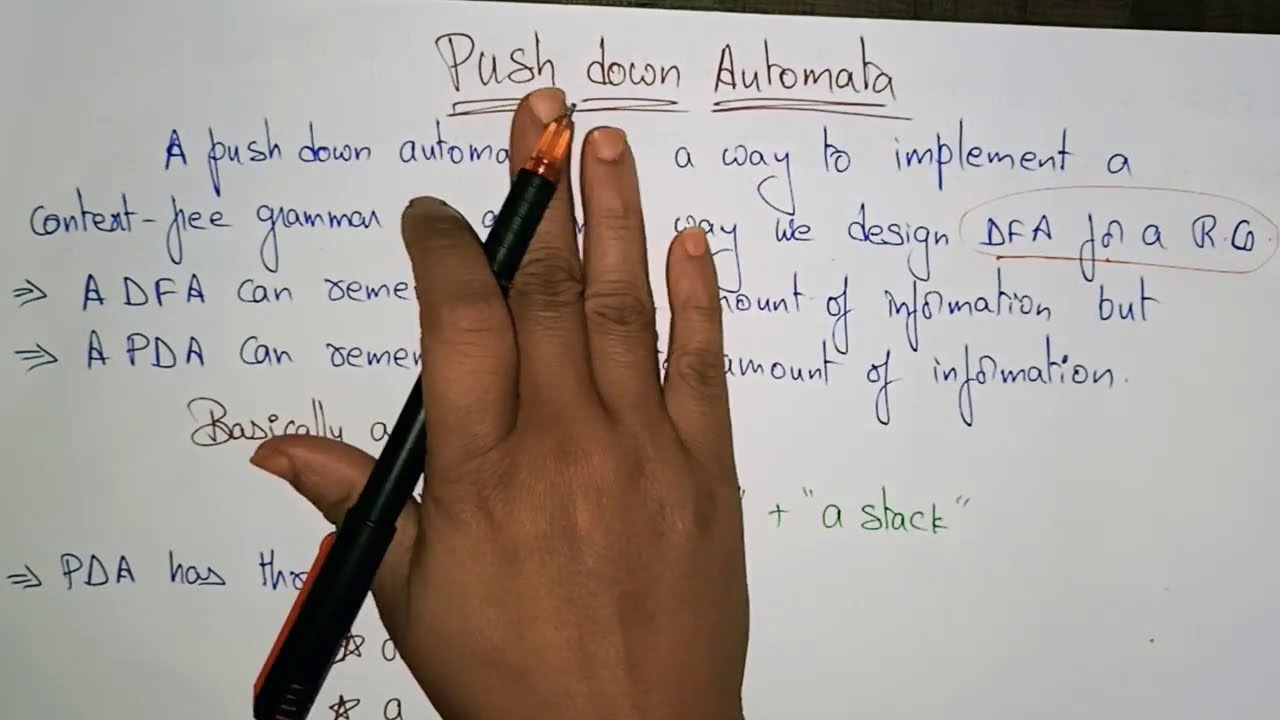 Push down Automata
A push down automa a way to implement a
context-free grammar way we design DFA for a R.G.
⇒ A DFA can reme mount of information but
⇒ A PDA can reme amount of information.
Basically a
" + "a stack"
⇒ PDA has thr
☆ a
☆ a